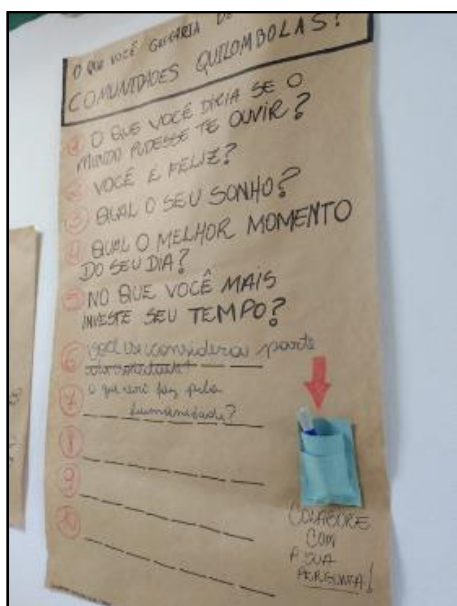 O QUE VOCÊ GOSTARIA DE
COMUNIDADES QUILOMBOLAS?
1 O QUE VOCÊ DIRIA SE O
MUNDO PUDESSE TE OUVIR?
2 VOCÊ É FELIZ?
3 QUAL O SEU SONHO?
4 QUAL O MELHOR MOMENTO
DO SEU DIA?
5 NO QUE VOCÊ MAIS
INVESTE SEU TEMPO?
6 você se considera parte
7 o que você faz pela
humanidade?
8
9
10
COLABORE
COM
A SUA
PERGUNTA!